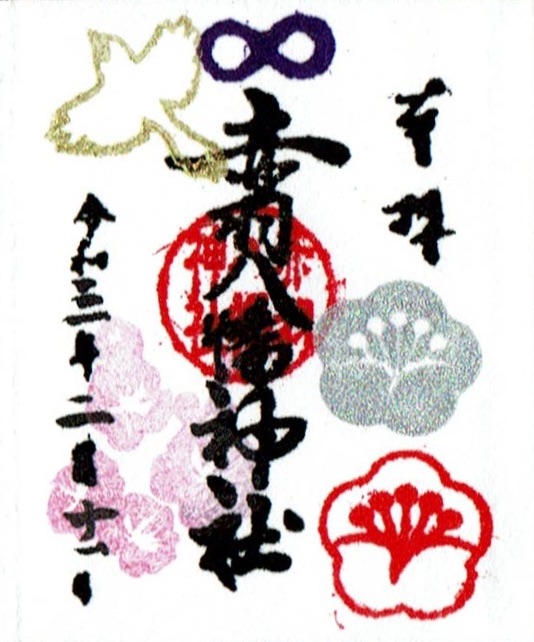 奉拝
赤羽八幡神社
令和三年二月十一日